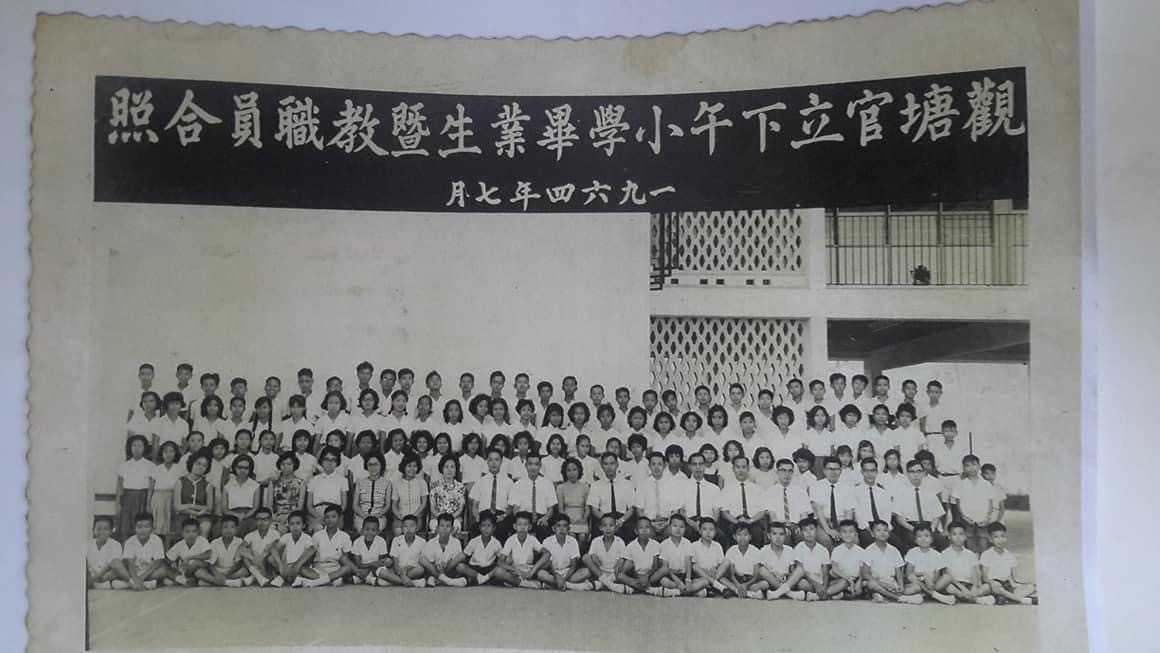 觀塘官立下午小學畢業生暨教職員合照
一九六四年七月